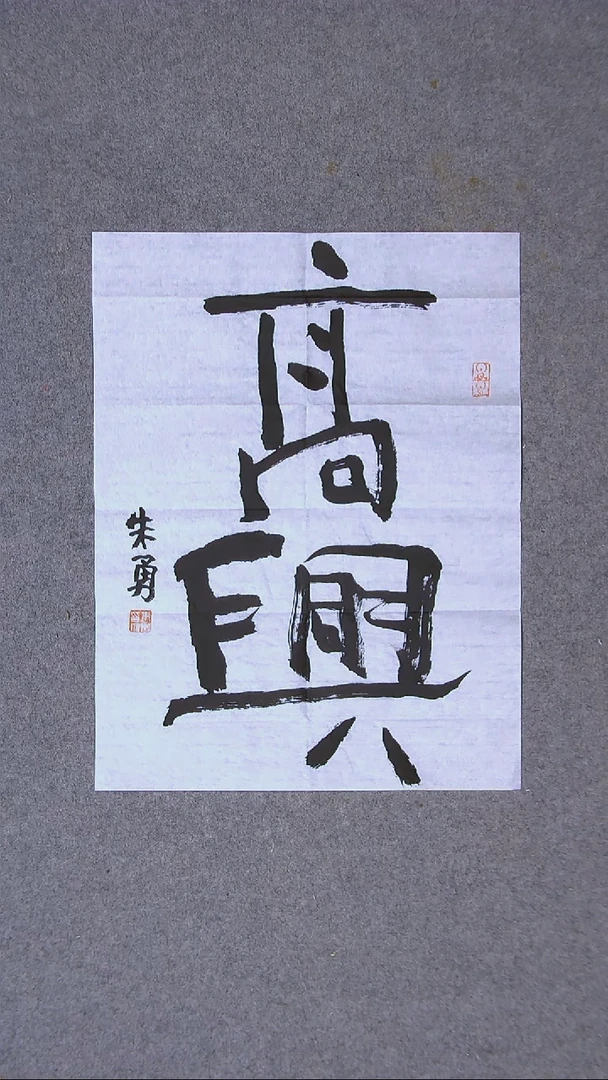 高興
朱勇